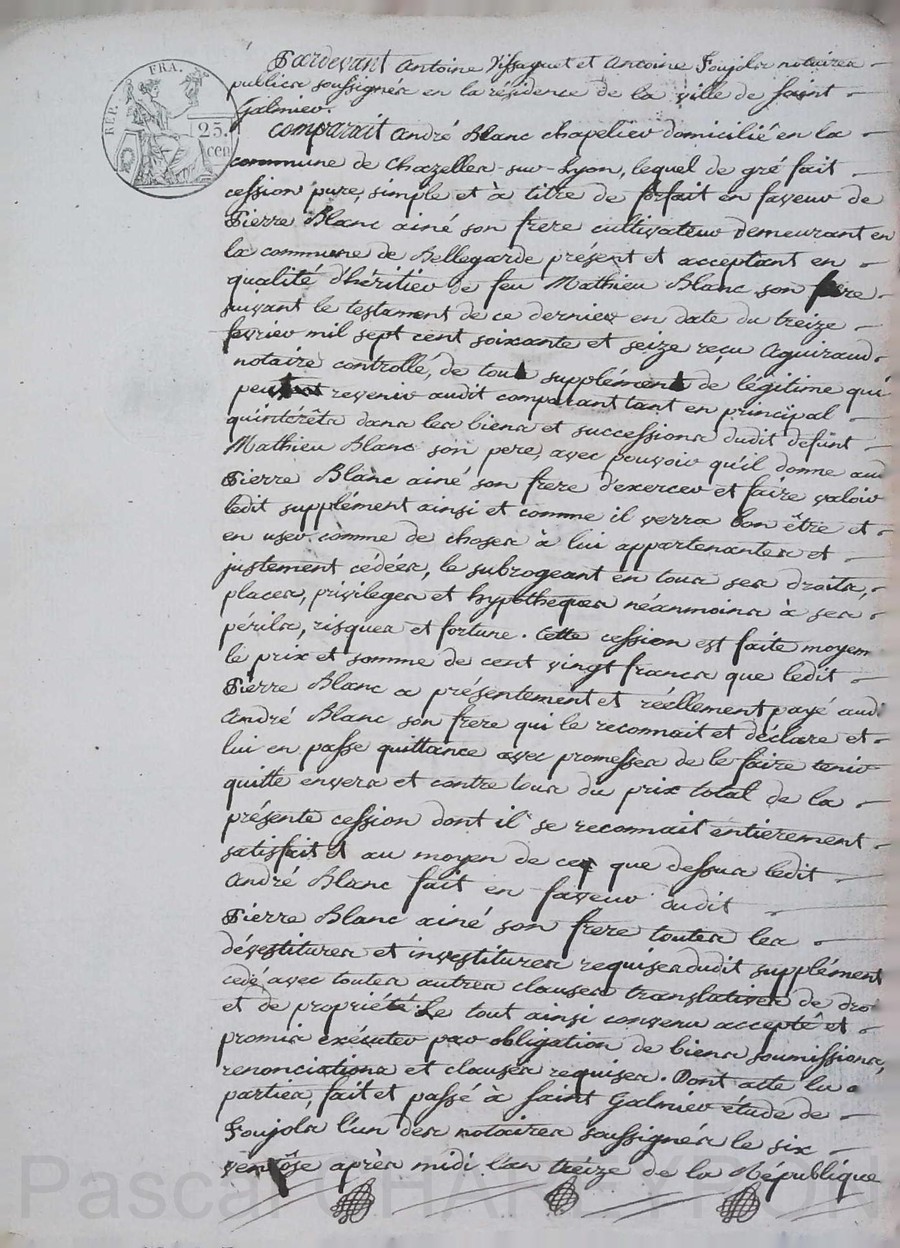 REP. FRA.
25.
cen
Pardevant Antoine Vissaguet et Antoine Foujols notaires
publics soussignés en la résidence de la ville de Saint
Galmier.
Comparait André Blanc chapelier domicilié en la
commune de Chazelles-sur-Lyon, lequel de gré fait
cession pure, simple et à titre de forfait en faveur de
Pierre Blanc ainé son frere cultivateur demeurant en
la commune de Bellegarde présent et acceptant en
qualité d'héritier de feu Mathieu Blanc son pere
suivant le testament de ce dernier en date du treize
fevrier mil sept cent soixante et seize reçu Aguiraud
notaire controlle, de tout supplément de légitime qui
peut revenir audit comparant tant en principal
qu'intérêts dans les biens et successions dudit defunt
Mathieu Blanc son pere, avec pouvoir qu'il donne aud
Pierre Blanc ainé son frere d'exercer et faire valoir
ledit supplément ainsi et comme il verra bon être et
en user comme de choses à lui appartenantes et
justement cédées, le subrogeant en tous ses droits,
places, privileges et hypotheques néanmoins à ses
périls, risques et fortune. Cette cession est faite moyen
le prix et somme de cent vingt francs que ledit
Pierre Blanc a présentement et réellement payé aud
André Blanc son frere qui le reconnait et déclare et
lui en passe quittance avec promesses de le faire tenir
quitte envers et contre tous du prix total de la
présente cession dont il se reconnait entierement
satisfait et au moyen de ce que dessus ledit
André Blanc fait en faveur dudit
Pierre Blanc ainé son frere toutes les
dévestitures et investitures requises dudit supplément
cédé avec toutes autres clauses translatives de dro
et de propriété Le tout ainsi convenu accepté et
promis exécuter par obligation de biens soumissions,
renonciations et clauses requises. Dont acte lu
parties, fait et passé à Saint Galmier étude de
Foujols l'un des notaires soussignés le six
ventôse après midi l'an treize de la République
Pascal CHAREYRON